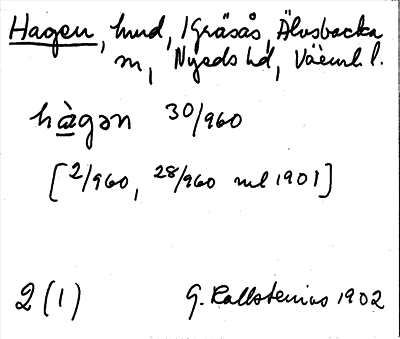 Hagen, hmd, 1 Gräsås, Älvsbacka
sn, Nyeds hd, Värml. l.
hàgən 30/960
[2/960, 28/960 ml 1901]
2 (1) G. Kallstenius 1902